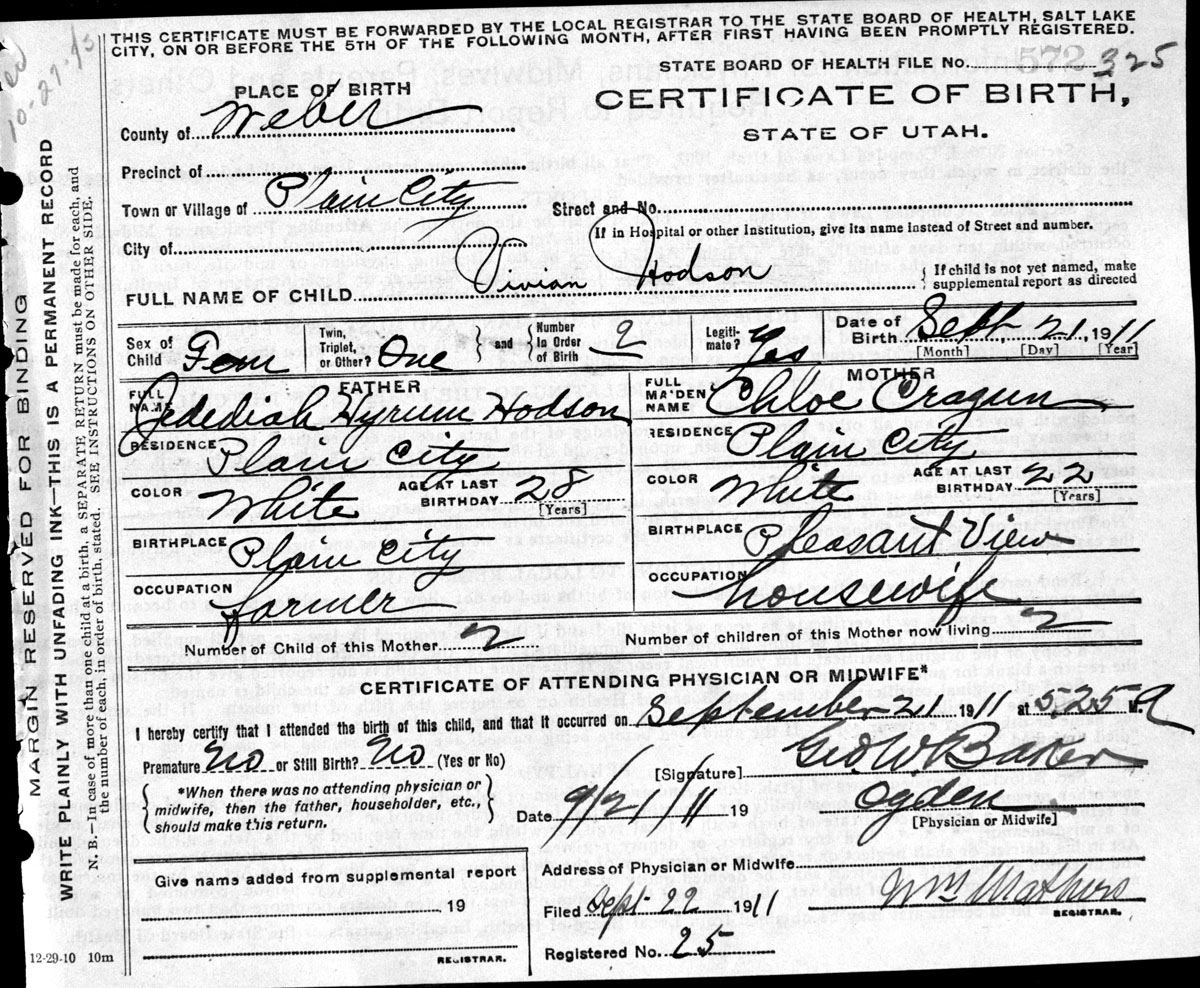 THIS CERTIFICATE MUST BE FORWARDED BY THE LOCAL REGISTRAR TO THE STATE BOARD OF HEALTH, SALT LAKE
CITY, ON OR BEFORE THE 5TH OF THE FOLLOWING MONTH, AFTER FIRST HAVING BEEN PROMPTLY REGISTERED.
STATE BOARD OF HEALTH FILE No. 572 325
PLACE OF BIRTH
CERTIFICATE OF BIRTH,
STATE OF UTAH.
County of Weber
Precinct of
Town or Village of Plain City
Street and No.
City of
If in Hospital or other Institution, give its name instead of Street and number.
FULL NAME OF CHILD Vivian Hodson
{ If child is not yet named, make
supplemental report as directed
Sex of Child Fem
Twin, Triplet, or Other? One
{ and } Number in Order of Birth 2
Legitimate? Yes
Date of Birth Sept 21 1911
[Month] [Day] [Year]
FATHER
FULL NAME Jedediah Hyrum Hodson
RESIDENCE Plain City
COLOR White
AGE AT LAST BIRTHDAY 28
[Years]
BIRTHPLACE Plain City
OCCUPATION farmer
MOTHER
FULL MAIDEN NAME Chloe Cragun
RESIDENCE Plain City
COLOR White
AGE AT LAST BIRTHDAY 22
[Years]
BIRTHPLACE Pleasant View
OCCUPATION housewife
Number of Child of this Mother 2
Number of children of this Mother now living 2
CERTIFICATE OF ATTENDING PHYSICIAN OR MIDWIFE*
I hereby certify that I attended the birth of this child, and that it occurred on September 21 1911 at 5:25
Premature No or Still Birth? No (Yes or No)
{ *When there was no attending physician or
midwife, then the father, householder, etc.,
should make this return. }
[Signature] Geo W Baker
Date 9/21/11 19
Ogden
[Physician or Midwife]
Give name added from supplemental report
19
REGISTRAR.
Address of Physician or Midwife
Filed Sept 22 1911
Wm Mathers
REGISTRAR.
Registered No. 25
12-29-10 10m
MARGIN RESERVED FOR BINDING
WRITE PLAINLY WITH UNFADING INK—THIS IS A PERMANENT RECORD
N. B.—In case of more than one child at a birth, a SEPARATE RETURN must be made for each, and
the number of each, in order of birth, stated. SEE INSTRUCTIONS ON OTHER SIDE.